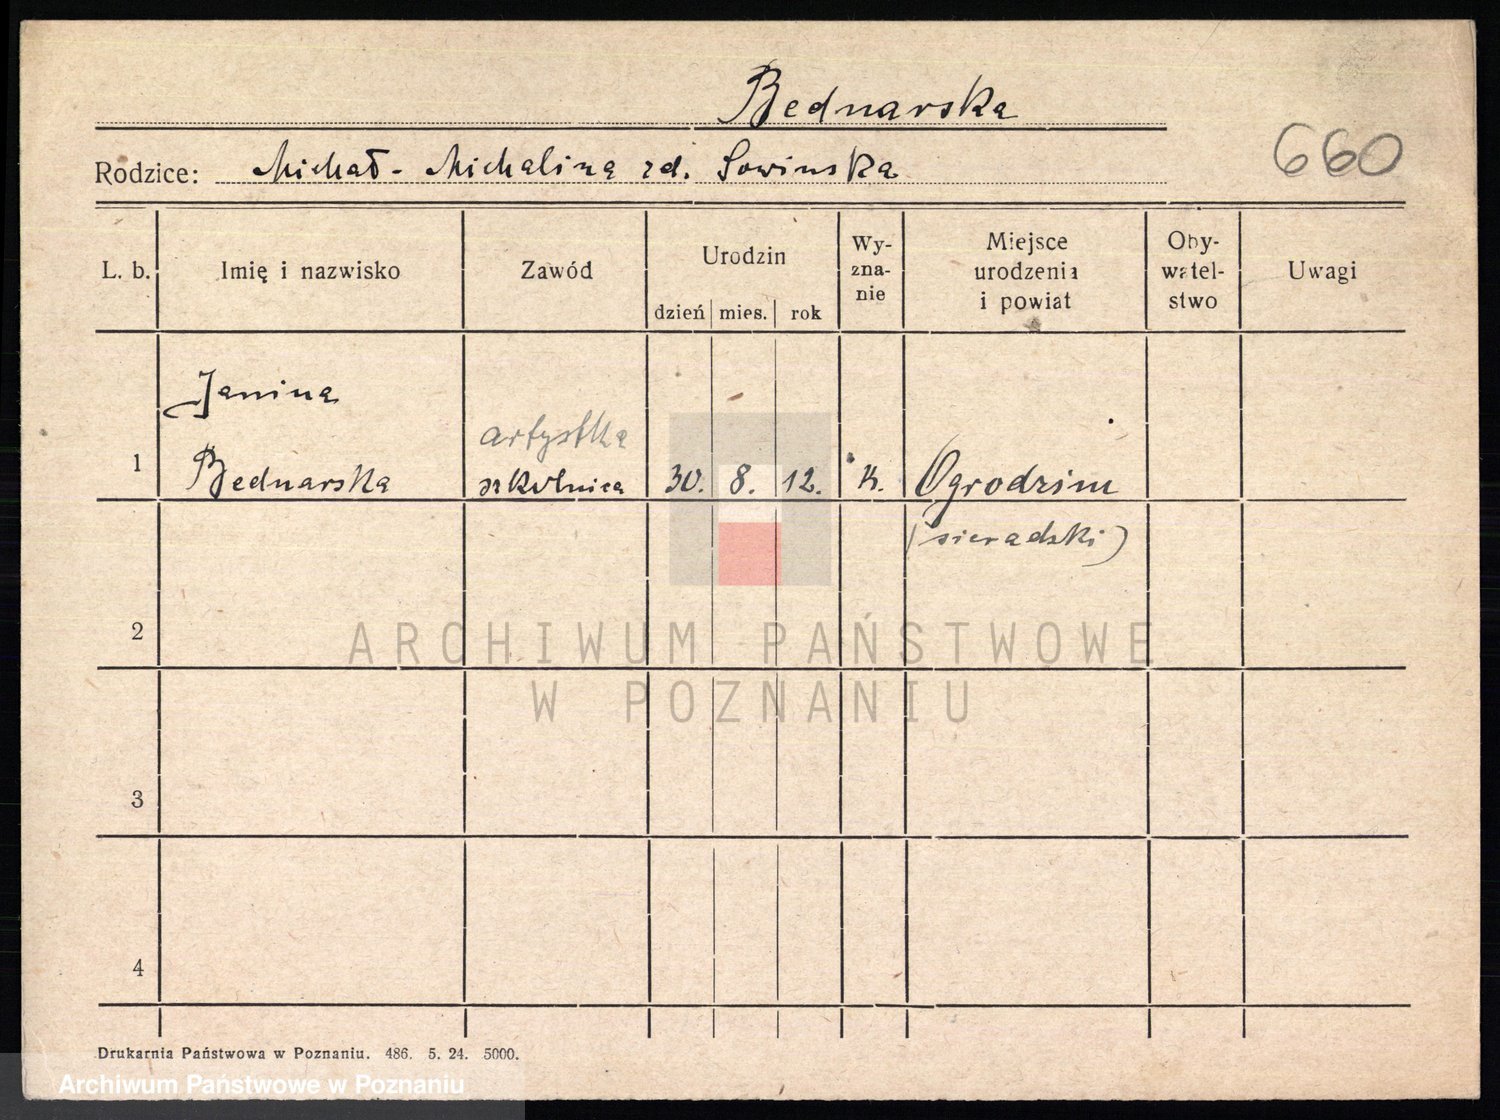 Bednarska
660
Rodzice: Michał - Michalina zd. Sowinska
L. b. Imię i nazwisko Zawód Urodzin dzień mies. rok Wy-zna-nie Miejsce urodzenia i powiat Oby-watel-stwo Uwagi
Janina
artystka
1 Bednarska szkolnica 30. 8. 12. k. Ogrodzim
(sieradski)
2
ARCHIWUM PAŃSTWOWE
W POZNANIU
3
4
Drukarnia Państwowa w Poznaniu. 486. 5. 24. 5000.
Archiwum Państwowe w Poznaniu